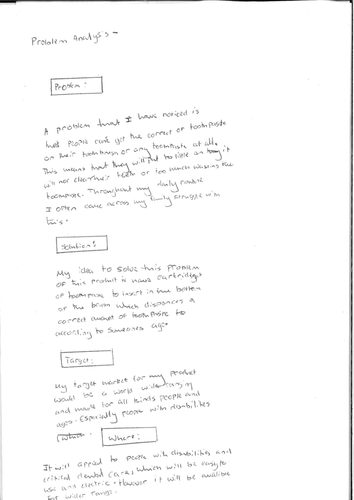 Problem Analysis -
Problem:
A problem that I have noticed is
that people can't get the correct of toothpaste
on their toothbrush or any toothpaste at all.
This means that they will
will not clean their teeth or too much wasting the
toothpaste. Throughout my daily routine
I often come across my family struggle with
this.
Solution:
My idea to solve this problem
of this product is have cartridges
of toothpaste to insert in the bottom
of the brush which dispenses a
correct amount of toothpaste to
according to someones age.
Target:
My target market for my product
would be a world wide range
and made for all kinds people and
ages. Especially people with disabilities
Where:
It will appeal to people with disabilities and
critical dental care, which will be easy to
use and electric. However it will be availible
for wider range.